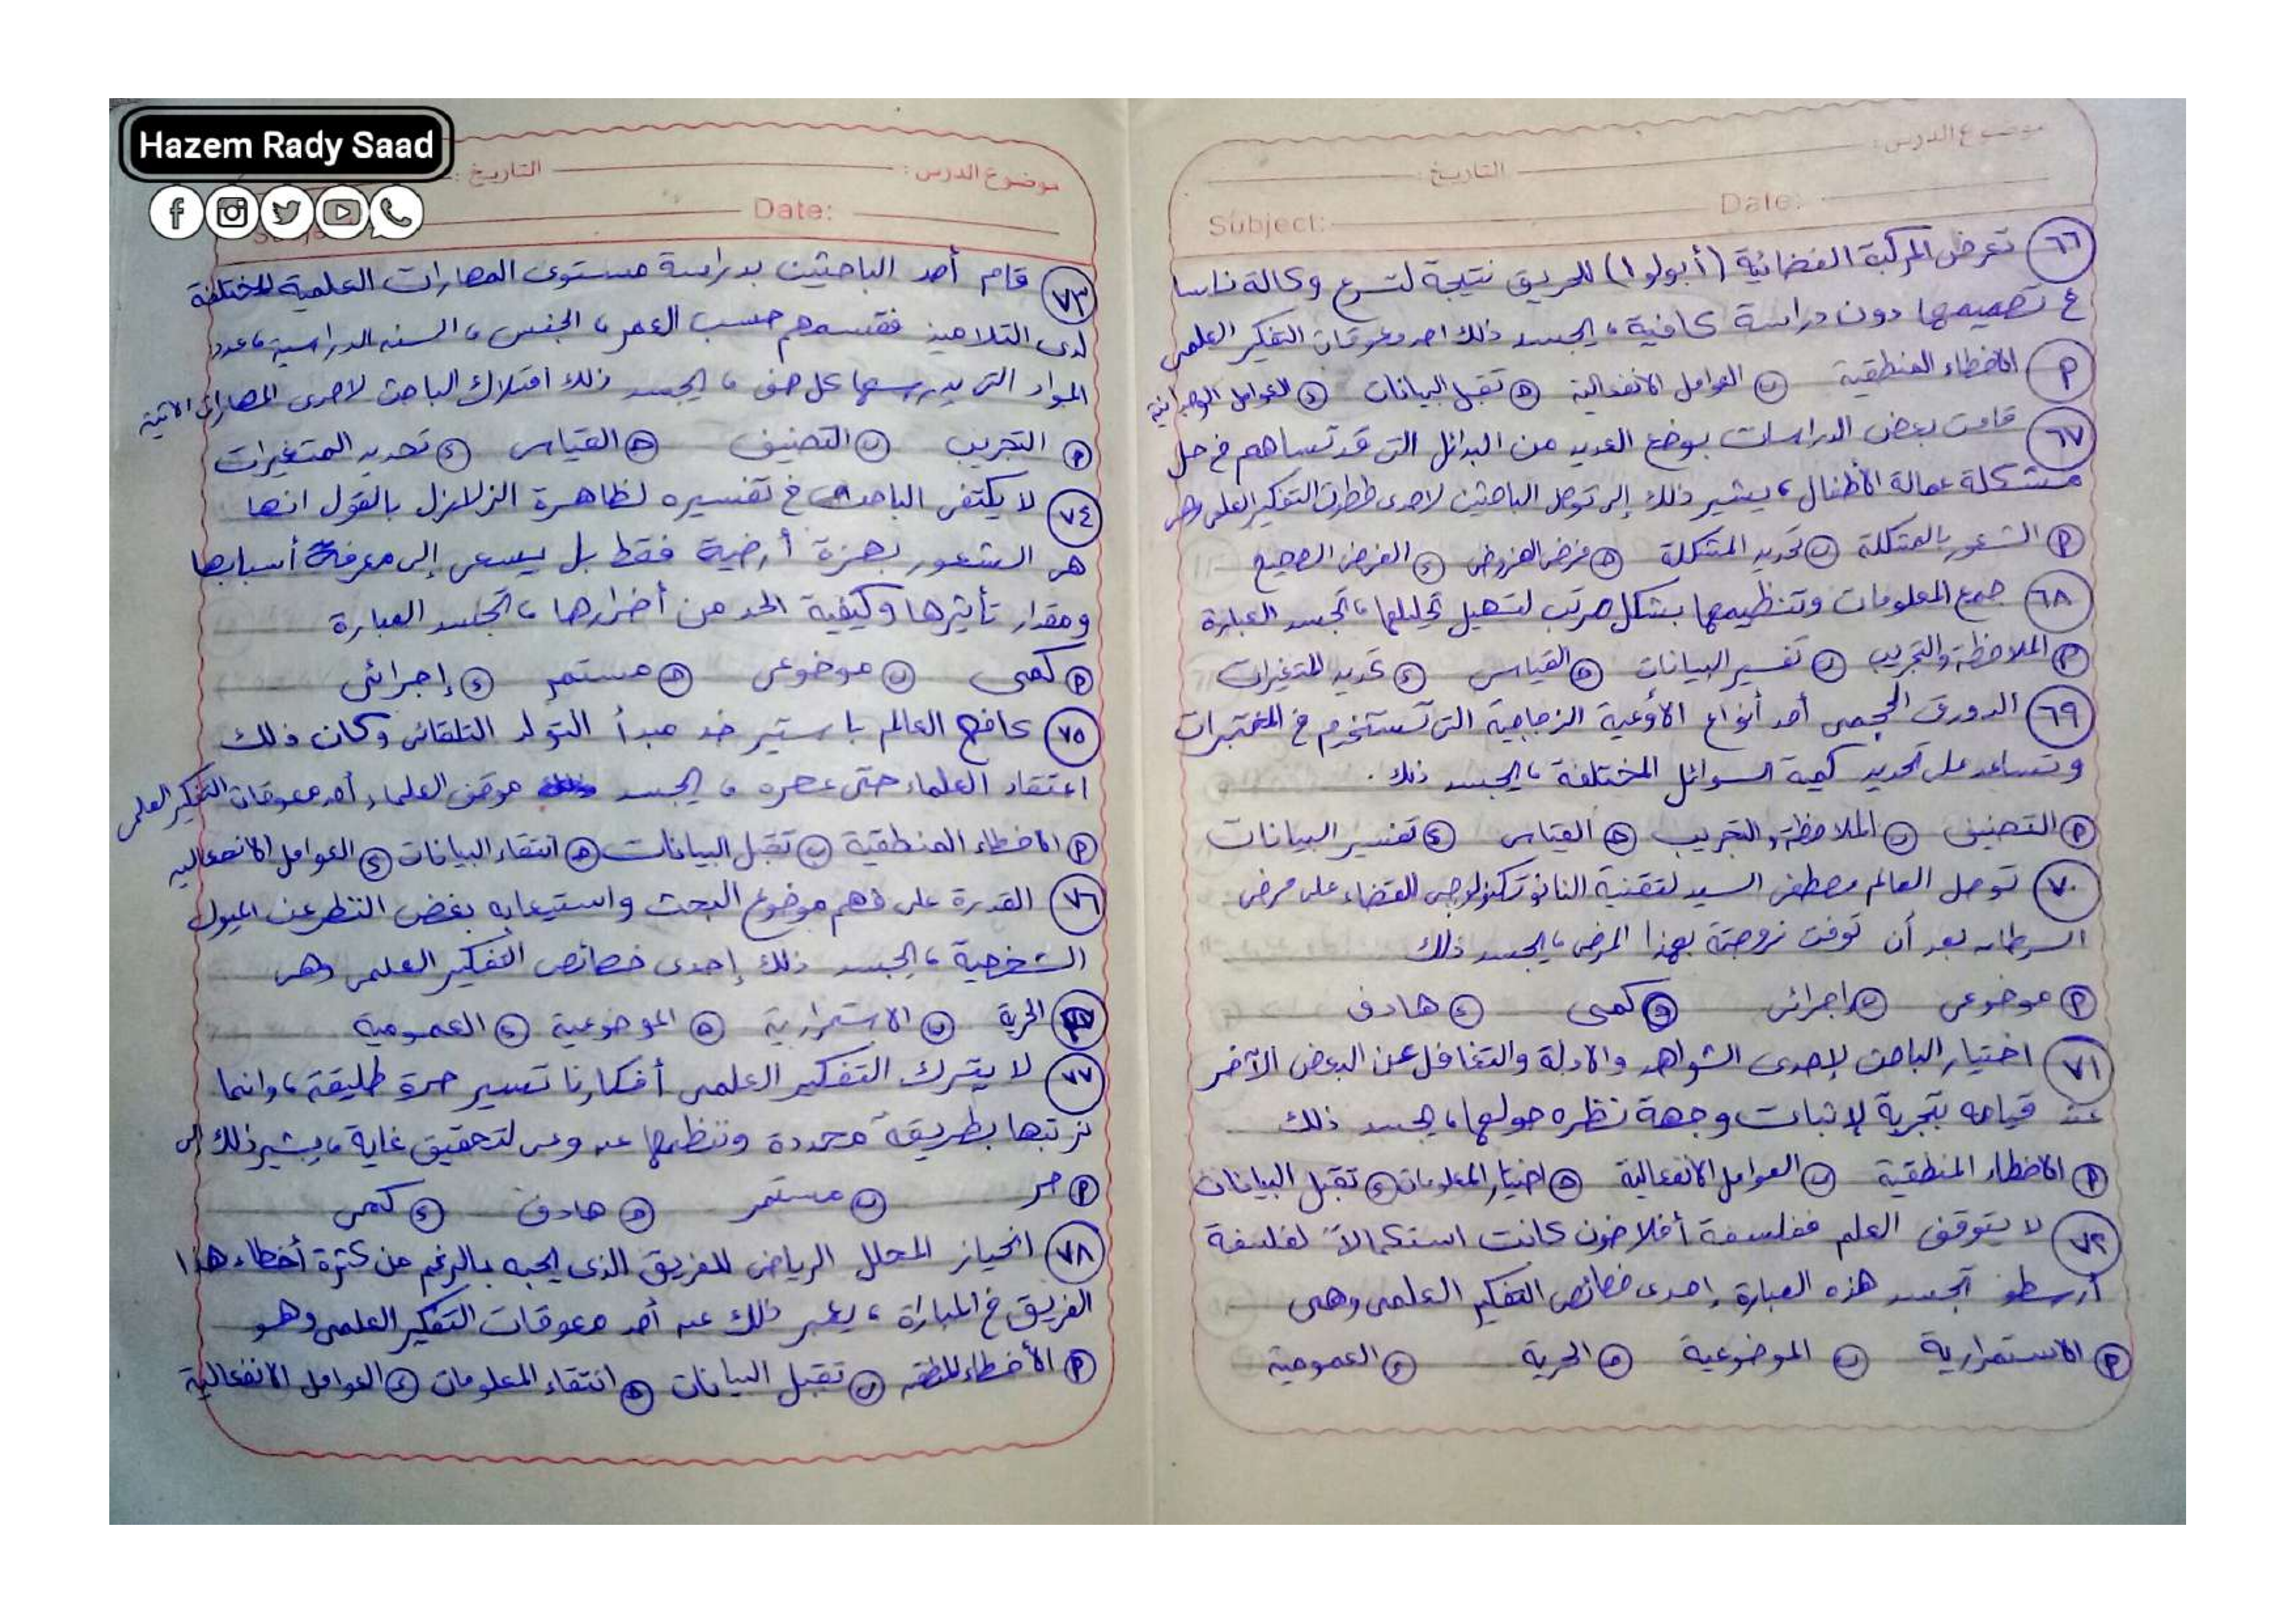 Hazem Rady Saad
موضوع الدرس: التاريخ:
Subject: Date:
٦٦ تعرض المركبة الفضائية (أبولو ١) للحريق نتيجة لتسرع وكالة ناسا
ع تصميمها دون دراسة كافية، يجسد ذلك احد معوقات التفكير العلمى
أ الاخطاء المنطقية ب العوامل الانفعالية ج تقبل البيانات د العوامل الوجدانية
٦٧ قامت بعض الدراسات بوضع العديد من البدائل التى قد تساهم فى حل
مشكلة عمالة الأطفال، يشير ذلك إلى توصل الباحثين لاحدى خطوات التفكير العلمى وهى
أ الشعور بالمشكلة ب تحديد المشكلة ج فرض الفروض د الفرض الصحيح
٦٨ جمع المعلومات وتنظيمها بشكل مرتب لتسهيل تحليلها، تجسد العبارة
أ الملاحظة والتجريب ب تفسير البيانات ج القياس د تحديد المتغيرات
٦٩ الدورق الحجمى أحد أنواع الأوعية الزجاجية التى تستخدم فى المختبرات
وتساعد على تحديد كمية السوائل المختلفة، يجسد ذلك.
أ التصنيف ب الملاحظة والتجريب ج القياس د تفسير البيانات
٧٠ توصل العالم مصطفى السيد لتقنية النانو تكنولوجى للقضاء على مرض
السرطان بعد أن توفت زوجتة بهذا المرض، يجسد ذلك
أ موضوعى ب اجرائى ج كمى د هادف
٧١ اختيار الباحث لإحدى الشواهد والادلة والتغافل عن البعض الآخر
عند قيامه بتجربة لإثبات وجهة نظره حولها، يجسد ذلك
أ الاخطاء المنطقية ب العوامل الانفعالية ج اختيار المعلومات د تقبل البيانات
٧٢ لا يتوقف العلم ففلسفة أفلاطون كانت استكمالاً لفلسفة
أرسطو تجسد هذه العبارة احدى خصائص التفكير العلمى وهى
أ الاستمرارية ب الموضوعية ج الحرية د العمومية
موضوع الدرس: التاريخ:
Date:
٧٣ قام أحد الباحثين بدراسة مستوى المهارات العلمية المختلفة
لدى التلاميذ فقسمهم حسب العمر، الجنس، السنه الدراسية، عدد
المواد التى يدرسها كل صف، يجسد ذلك امتلاك الباحث لاحدى المهارات الاتية
أ التجريب ب التصنيف ج القياس د تحديد المتغيرات
٧٤ لا يكتفى الباحث فى تفسيره لظاهرة الزلازل بالقول انها
هى الشعور بهزة أرضية فقط بل يسعى إلى معرفة أسبابها
ومقدار تأثيرها وكيفية الحد من أضرارها، تجسد العبارة
أ كمى ب موضوعى ج مستمر د إجرائى
٧٥ كافح العالم باستير ضد مبدأ التولد التلقائى وكان ذلك
اعتقاد العلماء حتى عصره، يجسد موقف العلماء أحد معوقات التفكير العلمى
أ الاخطاء المنطقية ب تقبل البيانات ج انتقاء البيانات د العوامل الانفعاليه
٧٦ القدرة على فهم موضوع البحث واستيعابه بغض النظر عن الميول
الشخصية، يجسد ذلك إحدى خصائص التفكير العلمى وهى
أ الحرية ب الاستمرارية ج الموضوعية د العمومية
٧٧ لا يترك التفكير العلمى أفكارنا تسير حرة طليقة، وانما
نرتبها بطريقة محددة وننظمها عن وعى لتحقيق غاية، يشير ذلك إلى
أ حر ب مستمر ج هادف د كمى
٧٨ انحياز المحلل الرياضى للفريق الذى يحبه بالرغم من كثرة أخطاء هذا
الفريق فى المباراة، يعبر ذلك عن أحد معوقات التفكير العلمى وهو
أ الأخطاء المنطقية ب تقبل البيانات ج انتقاء المعلومات د العوامل الانفعالية